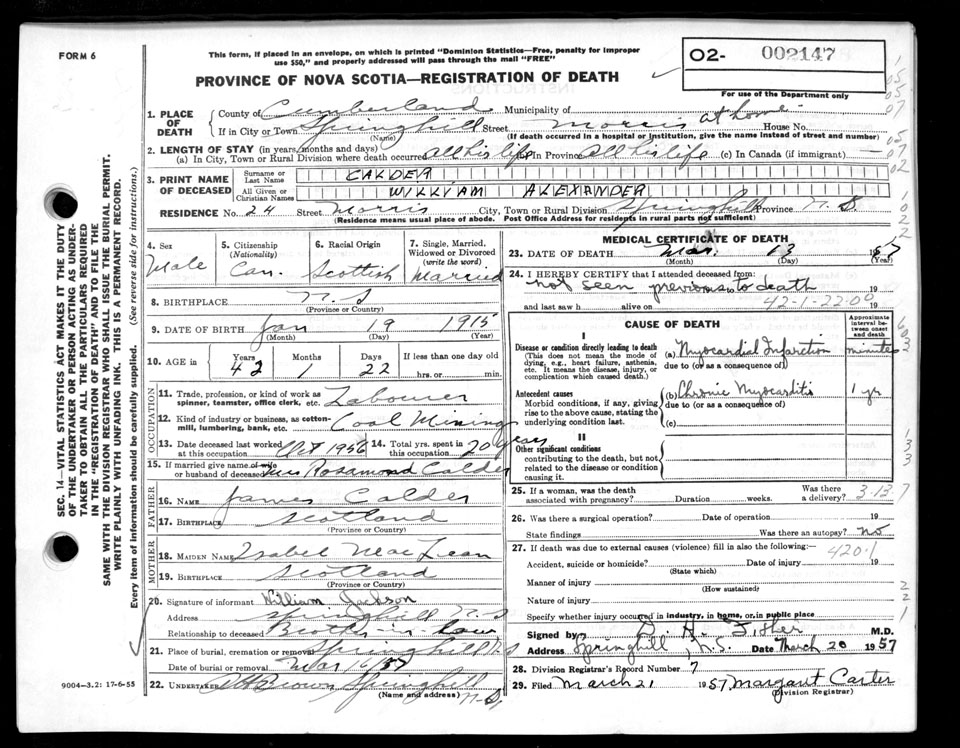 FORM 6
This form, if placed in an envelope, on which is printed "Dominion Statistics—Free, penalty for improper
use $50," and properly addressed will pass through the mail "FREE"
PROVINCE OF NOVA SCOTIA—REGISTRATION OF DEATH
O2- 002147
For use of the Department only
1. PLACE OF DEATH County of Cumberland Municipality of
If in City or Town Springhill Street Morris at home House No.
(Name) (If death occurred in a hospital or institution, give the name instead of street and number)
2. LENGTH OF STAY (in years, months and days)
(a) In City, Town or Rural Division where death occurred all his life In Province all his life (c) In Canada (if immigrant) —
3. PRINT NAME OF DECEASED Surname or Last Name CALDER
All Given or Christian Names WILLIAM ALEXANDER
RESIDENCE No. 24 Street Morris City, Town or Rural Division Springhill Province N.S.
(Residence means usual place of abode. Post Office Address for residents in rural parts not sufficient)
4. Sex Male
5. Citizenship (Nationality) Can.
6. Racial Origin Scottish
7. Single, Married, Widowed or Divorced (write the word) Married
8. BIRTHPLACE N.S
(Province or Country)
9. DATE OF BIRTH Jan 19 1915
(Month) (Day) (Year)
10. AGE in Years 42 Months 1 Days 22 If less than one day old
hrs. or min.
OCCUPATION
11. Trade, profession, or kind of work as spinner, teamster, office clerk, etc. Labourer
12. Kind of industry or business, as cotton-mill, lumbering, bank, etc. Coal Mining
13. Date deceased last worked at this occupation Oct 1956
14. Total yrs. spent in this occupation 20 years
15. If married give name of wife or husband of deceased Mrs Rosamond Calder
FATHER
16. Name James Calder
17. Birthplace Scotland
(Province or Country)
MOTHER
18. MAIDEN NAME Isabel MacLean
19. BIRTHPLACE Scotland
(Province or Country)
20. Signature of informant William Jackson
Address Springhill N.S
Relationship to deceased Brother-in-law
21. Place of burial, cremation or removal Springhill N.S
Date of burial or removal Mar 16/57
22. UNDERTAKER Brown Springhill N.S.
(Name and address)
MEDICAL CERTIFICATE OF DEATH
23. DATE OF DEATH Mar. 13 1957
(Month) (Day) (Year)
24. I HEREBY CERTIFY that I attended deceased from:
not seen previous to death 19
and last saw h alive on 42-1-22-00 19
CAUSE OF DEATH
Approximate interval between onset and death
I
Disease or condition directly leading to death
(This does not mean the mode of dying, e.g., heart failure, asthenia, etc. It means the disease, injury, or complication which caused death.)
(a) Myocardial Infarction minutes
due to (or as a consequence of)
Antecedent causes
Morbid conditions, if any, giving rise to the above cause, stating the underlying condition last.
(b) Chronic Myocarditis 1 yr
due to (or as a consequence of)
(c)
II
Other significant conditions
contributing to the death, but not related to the disease or condition causing it.
25. If a woman, was the death associated with pregnancy? Duration weeks. Was there a delivery? 3-13-7
26. Was there a surgical operation? Date of operation 19
State findings Was there an autopsy? no
27. If death was due to external causes (violence) fill in also the following:— 420.1
Accident, suicide or homicide? Date of injury 19
(State which)
Manner of injury
(How sustained)
Nature of injury
Specify whether injury occurred in industry, in home, or in public place
Signed by Fisher M.D.
Address Springhill, N.S. Date March 20 1957
28. Division Registrar's Record Number 7
29. Filed March 21 1957 Margaret Carter
(Division Registrar)
9004—3.2: 17-6-55
SEC. 14—VITAL STATISTICS ACT MAKES IT THE DUTY
OF THE UNDERTAKER OR PERSON ACTING AS UNDERTAKER TO OBTAIN ALL THE PARTICULARS REQUIRED
IN THE "REGISTRATION OF DEATH" AND TO FILE THE
SAME WITH THE DIVISION REGISTRAR WHO SHALL ISSUE THE BURIAL PERMIT.
WRITE PLAINLY WITH UNFADING INK. THIS IS A PERMANENT RECORD.
Every item of information should be carefully supplied. (See reverse side for instructions.)